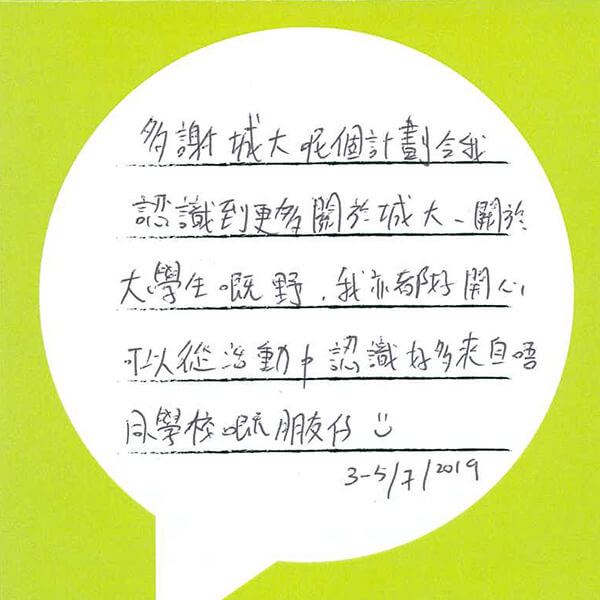 多謝城大呢個計劃令我
認識到更多關於城大、關於
大學生嘅野，我亦都好開心
可以從活動中認識好多來自唔
同學校嘅朋友仔 ☺
3-5/7/2019